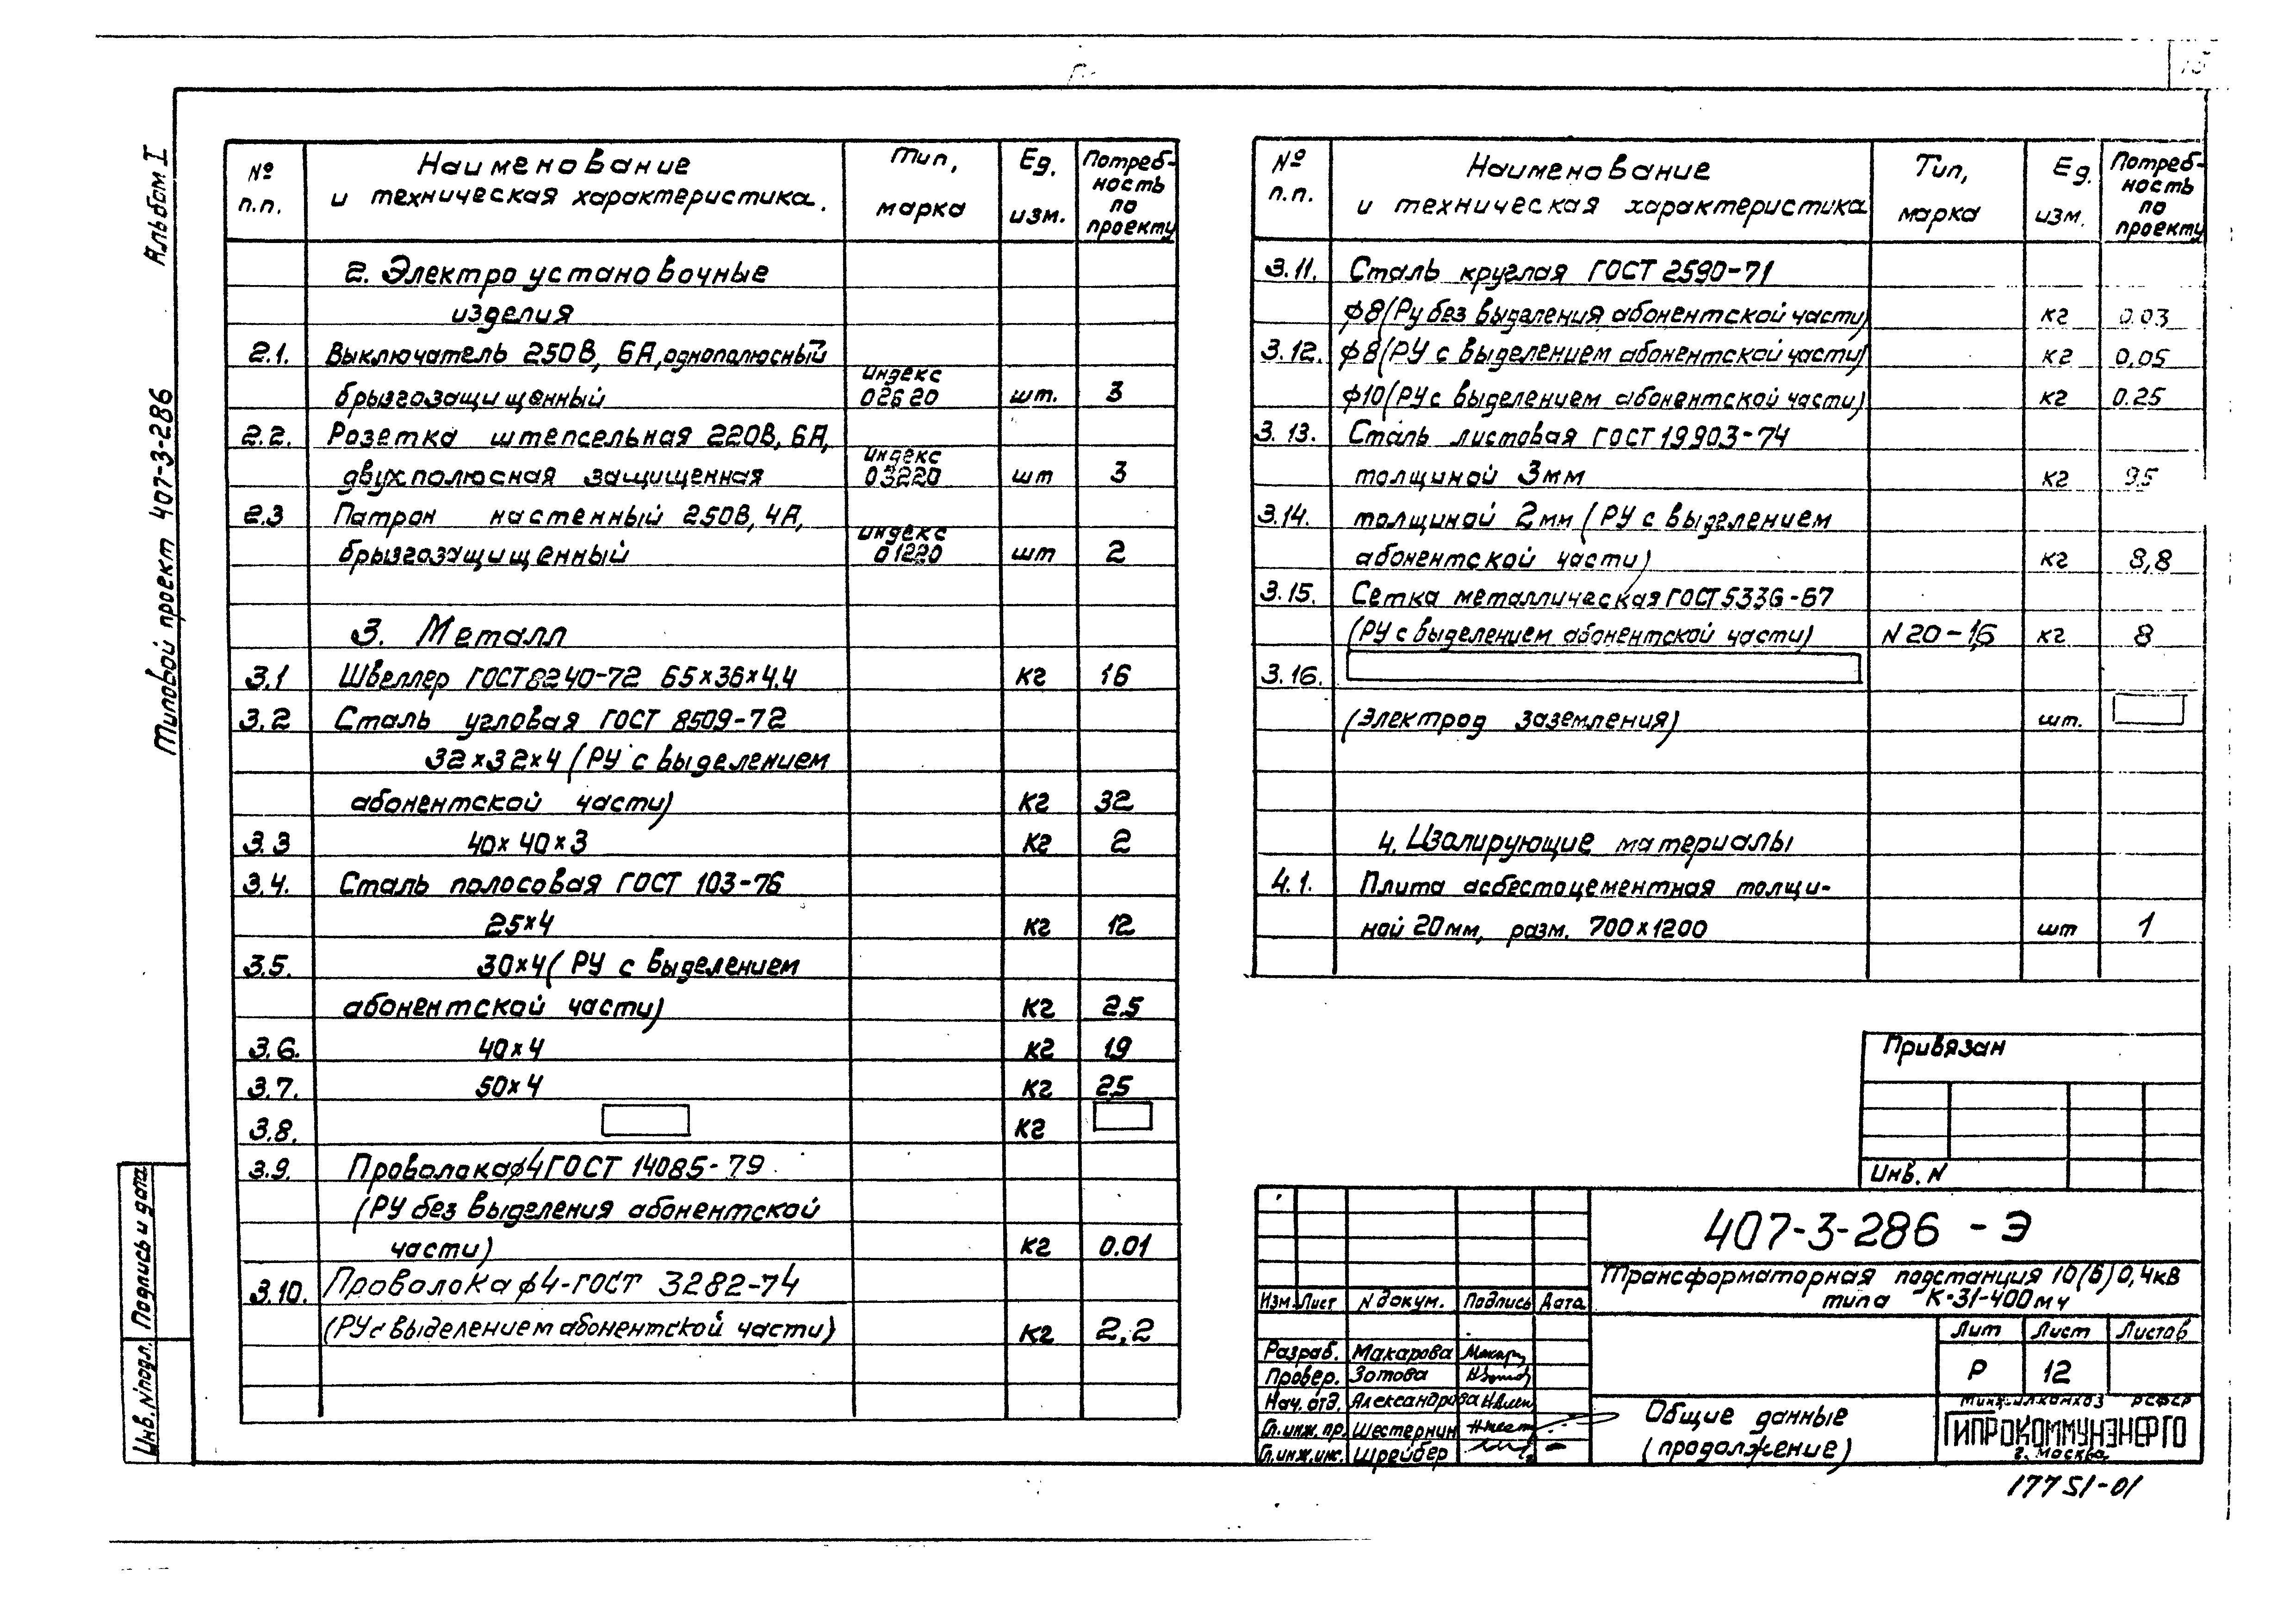 Альбом I
Типовой проект 407-3-286
Подпись и дата
Инв. N подл.
№ п.п.
Наименование и техническая характеристика.
Тип, марка
Ед. изм.
Потреб-ность по проекту
2. Электроустановочные
изделия
2.1. Выключатель 250В, 6А, однополюсный
брызгозащищенный индекс 02620 шт. 3
2.2. Розетка штепсельная 220В, 6А,
двухполюсная защищенная индекс 03220 шт 3
2.3 Патрон настенный 250В, 4А,
брызгозащищенный индекс 01220 шт 2
3. Металл
3.1 Швеллер ГОСТ 8240-72 65×36×4.4 кг 16
3.2 Сталь угловая ГОСТ 8509-72
32×32×4 (РУ с выделением
абонентской части) кг 32
3.3 40×40×3 кг 2
3.4. Сталь полосовая ГОСТ 103-76
25×4 кг 12
3.5. 30×4 (РУ с выделением
абонентской части) кг 2.5
3.6. 40×4 кг 19
3.7. 50×4 кг 25
3.8. кг
3.9. Проволока ф4 ГОСТ 14085-79
(РУ без выделения абонентской
части) кг 0.01
3.10. Проволока ф4-ГОСТ 3282-74
(РУ с выделением абонентской части) кг 2,2
№ п.п.
Наименование и техническая характеристика
Тип, марка
Ед. изм.
Потреб-ность по проекту
3.11. Сталь круглая ГОСТ 2590-71
ф8 (Ру без выделения абонентской части) кг 0.03
3.12. ф8 (РУ с выделением абонентской части) кг 0,05
ф10 (РУ с выделением абонентской части) кг 0.25
3.13. Сталь листовая ГОСТ 19903-74
толщиной 3мм кг
3.14. толщиной 2мм (РУ с выделением
абонентской части) кг 8,8
3.15. Сетка металлическая ГОСТ 5336-67
(РУ с выделением абонентской части) N20-1,6 кг 8
3.16.
(Электрод заземления) шт.
4. Изолирующие материалы
4.1. Плита асбестоцементная толщи-
ной 20мм, разм. 700×1200 шт 1
Привязан
Инв. N
407-3-286 - Э
Трансформаторная подстанция 10(6)0,4кВ
типа К-31-400мч
Изм. Лист N докум. Подпись Дата
Разраб. Макарова
Провер. Зотова
Нач. отд. Александрова
Гл. инж. пр. Шестернин
Гл. инж. инс. Шрейбер
Лит Лист Листов
Р 12
Общие данные
(продолжение)
Минжилкомхоз РСФСР
ГИПРОКОММУНЭНЕРГО
г. Москва
17751-01